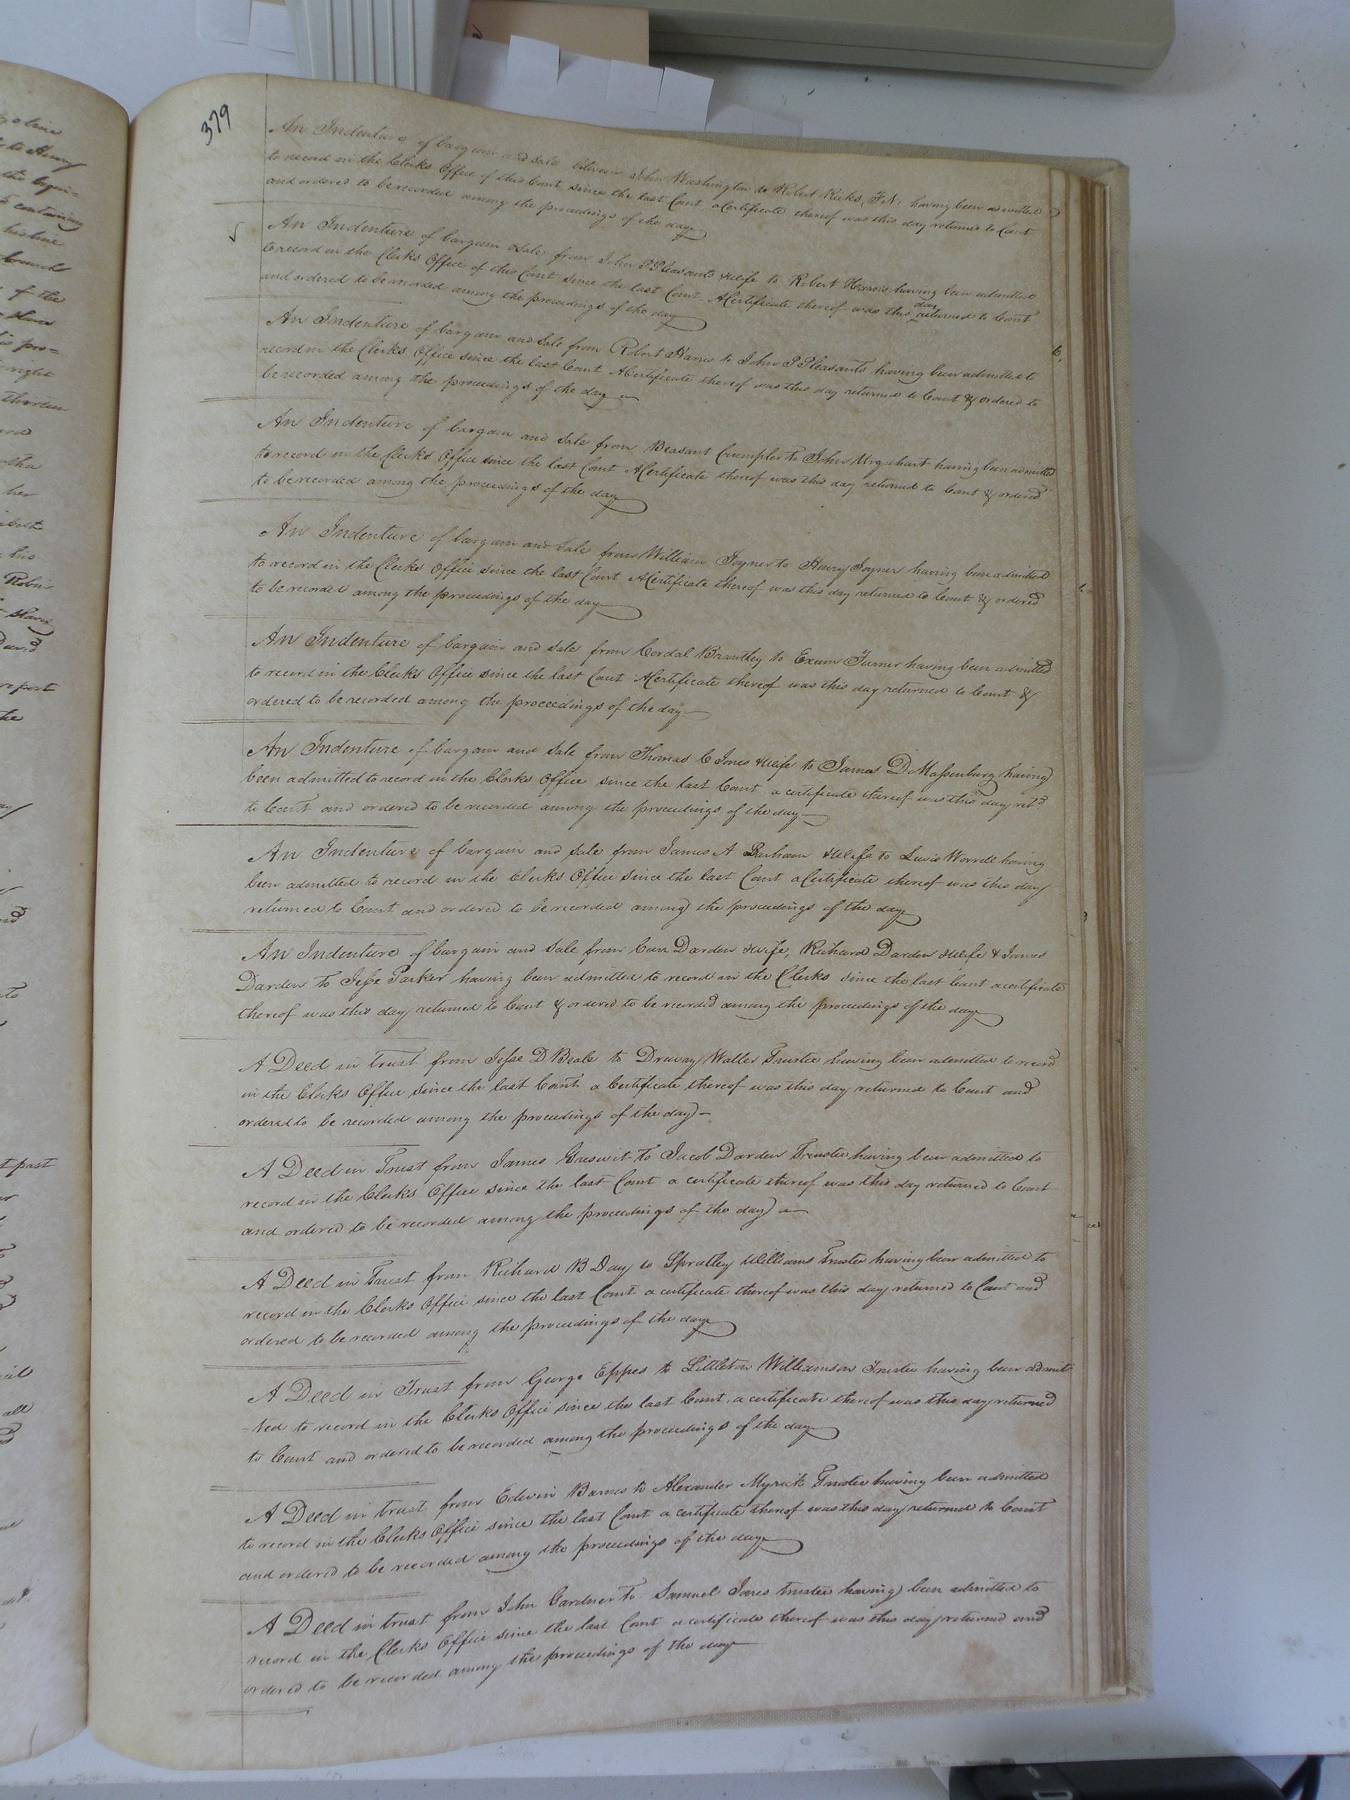 379
An Indenture of bargain and sale between John Washington to Robert Ricks, F.N. having been admitted
to record in the Clerks Office of this Court since the last Court a Certificate thereof was this day returned to Court
and ordered to be recorded among the proceedings of the day
An Indenture of bargain & sale from John P Pleasants & wife to Robert Harris having been admitted
to record in the Clerks Office of this Court since the last Court A Certificate thereof was this day returned to Court
and ordered to be recorded among the proceedings of the day
An Indenture of bargain and sale from Robert Harris to John P Pleasants having been admitted to
record in the Clerks Office since the last Court A Certificate thereof was this day returned to Court & ordered to
be recorded among the proceedings of the day
An Indenture of bargain and sale from Beasant Crumpler to John Urquhart having been admitted
to record in the Clerks Office since the last Court A Certificate thereof was this day returned to Court & ordered
to be recorded among the proceedings of the day
An Indenture of bargain and sale from William Joyner to Henry Joyner having been admitted
to record in the Clerks Office since the last Court A Certificate thereof was this day returned to Court & ordered
to be recorded among the proceedings of the day
An Indenture of bargain and sale from Cordal Brantley to Exum Turner having been admitted
to record in the Clerks Office since the last Court A Certificate thereof was this day returned to Court &
ordered to be recorded among the proceedings of the day
An Indenture of bargain and sale from Thomas C Jones & wife to James D Massenburg having
been admitted to record in the Clerks Office since the last Court a certificate thereof was this day retd
to Court and ordered to be recorded among the proceedings of the day
An Indenture of bargain and sale from James A Barham & wife to Lewis Worrell having
been admitted to record in the Clerks Office since the last Court a Certificate thereof was this day
returned to Court and ordered to be recorded among the proceedings of the day
An Indenture of bargain and sale from Carr Darden & wife, Richard Darden & wife & James
Darden to Jesse Parker having been admitted to record in the Clerks since the last Court a certificate
thereof was this day returned to Court & ordered to be recorded among the proceedings of the day
A Deed in trust from Jesse D Beale to Drewry Waller Trustee having been admitted to record
in the Clerks Office since the last Court a Certificate thereof was this day returned to Court and
ordered to be recorded among the proceedings of the day
A Deed in Trust from James to Jacob Darden Trustee having been admitted to
record in the Clerks Office since the last Court a certificate thereof was this day returned to Court
and ordered to be recorded among the proceedings of the day
A Deed in Trust from Richard B Day to Spratley Williams Trustee having been admitted to
record in the Clerks Office since the last Court a certificate thereof was this day returned to Court and
ordered to be recorded among the proceedings of the day
A Deed in Trust from George Eppes to Littleton Williamson Trustee having been admit
-ted to record in the Clerks Office since the last Court, a certificate thereof was this day returned
to Court and ordered to be recorded among the proceedings of the day
A Deed in trust from Edwin Barnes to Alexander Myrick Trustee having been admitted
to record in the Clerks Office since the last Court a certificate thereof was this day returned to Court
and ordered to be recorded among the proceedings of the day
A Deed in trust from John Gardner to Samuel Jones trustee having been admitted to
record in the Clerks Office since the last Court a certificate thereof was this day returned and
ordered to be recorded among the proceedings of the day